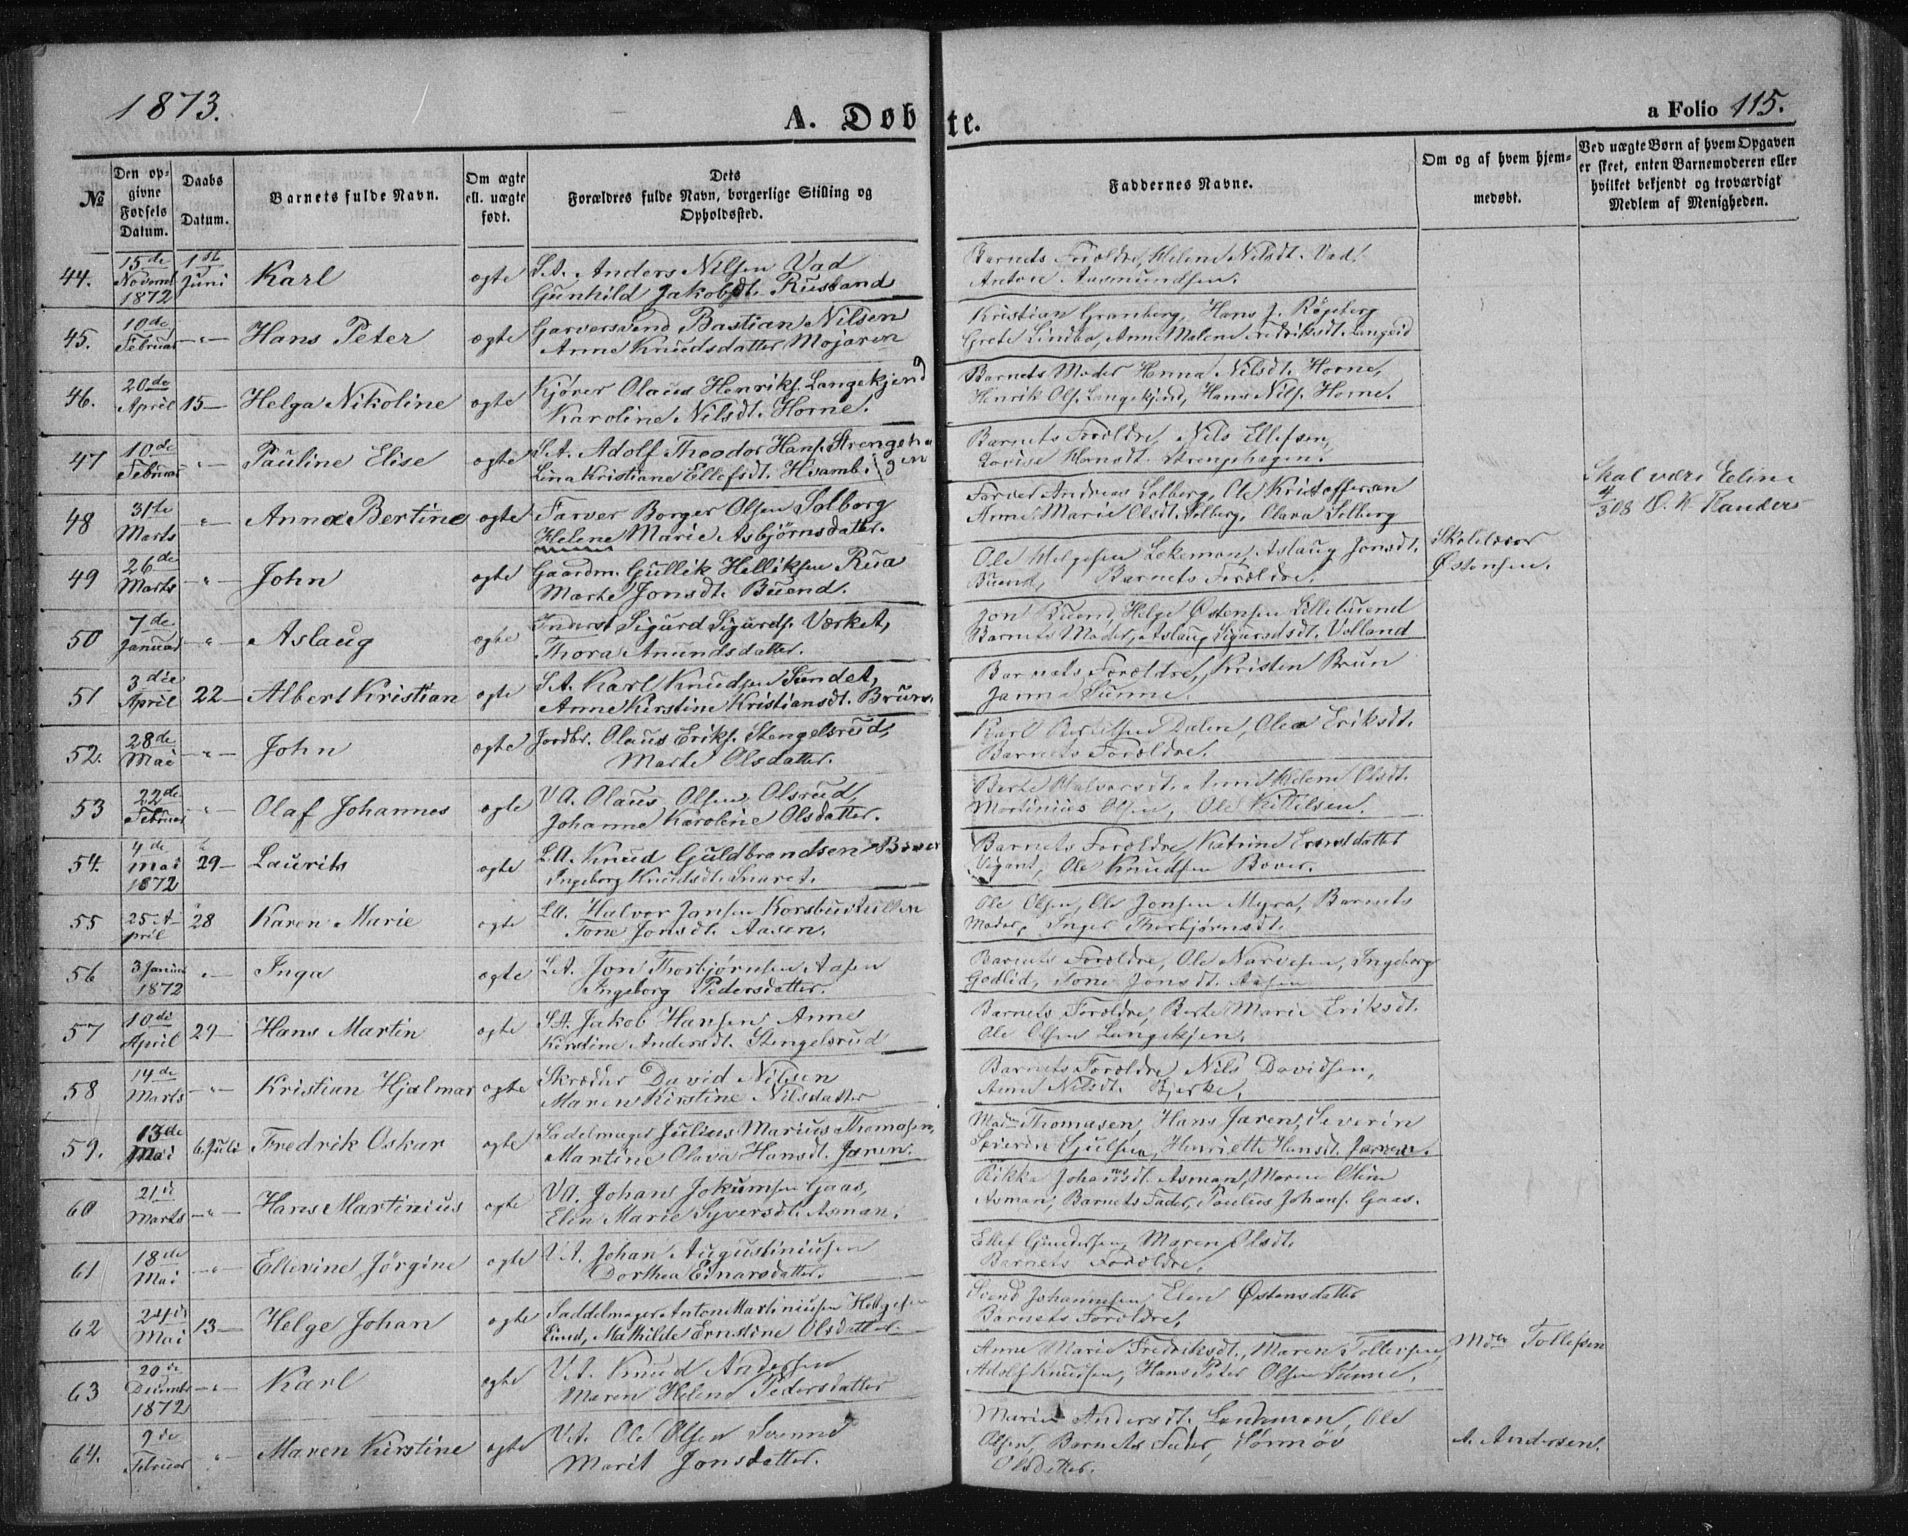 1873.
A. Døbte.
a Folio 115.
№
Den opgivne Fødsels Datum.
Daabs Datum.
Barnets fulde Navn.
Om ægte ell. uægte født.
Dets Forældres fulde Navn, borgerlige Stilling og Opholdssted.
Faddernes Navne.
Om og af hvem hjemmedøbt.
Ved uægte Børn af hvem Opgaven er skeet, enten Barnemoderen eller hvilket bekjendt og troværdigt Medlem af Menigheden.
44. 15de Novemb 1872 1ste Juni Karl ægte S.A. Anders Nilsen Vad
Gunhild Jakobsdt. Rustand
Barnets Forældre, Helene Nilsdt. Vad,
Anton Aasmundsen.
45. 10de Februar -"- Hans Peter ægte Garversvend Bastian Nilsen
Anne Knudsdatter Mojaren
Kristian Granberg, Hans J. Røgeberg
Grete Lindbo, Anne Malene Fredriksdt. Langeid
46. 20de April 15- Helga Nikoline ægte Kjører Olaus Henriks. Langekjend
Karoline Nilsdt. Horne.
Barnets Moder Hanna Nilsdt. Horne,
Henrik Ols. Langekjend, Hans Nils. Horne.
47 10de Februar -"- Pauline Elise ægte S.A. Adolf Theodor Hans. Strengehagen
Lina Kristiane Ellefsdt. Hvamb
Barnets Forældre, Nils Ellefsen,
Lovise Hansdt. Strengehagen.
48 31te Marts -"- Anna Bertine ægte Farver Borger Olsen Solberg
Helene Marie Asbjørnsdatter.
Farver Andreas Solberg, Ole Kristoffersen
Anne Marie Olsdt. Solberg, Olava Solberg
Skal være Eline
4/3 08 O. K. Randers
49 26de Marts -"- John ægte Gaardm. Gullik Helliksen Rua
Marte Jonsdt. Buend.
Ole Helgesen Lokeman, Aslaug Jonsdt.
Buend, Barnets Forældre.
Skolelærer Østensen.
50 7de Januar -"- Aslaug ægte Inderst Sigurd Sigurds. Værket,
Thora Amundsdatter.
Jon Buend, Helge Østensen Lillebuend
Barnets Moder, Aslaug Sigurdsdt. Volland
51 3die April 22- Albert Kristian ægte S.A. Karl Knudsen Sundet,
Anne Kirstine Kristiansdt. Brun.
Barnets Forældre, Kristen Brun
Janna Sunne.
52. 28de Mai -"- John ægte Jordbr. Olaus Eriks. Stengelsrud,
Marte Olsdatter.
Karl Bertelsen Dalen, Olea Eriksdt.
Barnets Forældre.
53 22de Februar -"- Olaf Johannes ægte V.A. Olaus Olsen Olsrud,
Johanne Karoline Olsdatter.
Berte Halvorsdt. Anne Helene Olsdt.
Martinius Olsen, Ole Kittelsen.
54. 4de Mai 1872 29- Laurits ægte L.A. Knud Guldbrandsen Bøver
Ingeborg Knudsdt. Snaret.
Barnets Forældre, Katrine Ernstdatter
Vigant, Ole Knudsen Bøver.
55 25. April 28 Karen Marie ægte L.A. Halvor Jansen Korsbusthullen
Tone Jonsdt. Aasen.
Ole Olsen, Ole Jonsen Myra, Barnets
Moder, Inger Thorbjørnsdt.
56 3 Januar 1872 -"- Inga ægte L.A. Jon Thorbjørnsen Aasen
Ingeborg Pedersdatter.
Barnets Forældre, Ole Narvesen, Ingeborg
Godlid, Tone Jonsdt. Aasen
57 10de April 29- Hans Martin ægte S.A. Jakob Hansen Anne
Kirstine Andersdt. Stengelsrud
Barnets Forældre, Berte Marie Eriksdt.
Ole Olsen Langekjen.
58 14de Marts -"- Kristian Hjalmar ægte Skræder David Nilsen
Maren Kirstine Nilsdatter
Barnets Forældre Nils Davidsen,
Anne Nilsdt. Bjerke.
59. 13de Mai 6. Juli Fredrik Oskar ægte Sadelmager Julius Marius Thomasen,
Martine Olava Hansdt. Jaren.
Madm Thomasen, Hans Jaren, Severin
Severin Gjulsen, Henriette Hansdt. Jaren.
60 21de Marts -"- Hans Martinius ægte V.A. Johans Jokumsen Gaas,
Elen Marie Syversdt. Asman.
Rikka Johannsdt. Asman, Maren Oline
Asman, Barnets Fader, Paulus Johans. Gaas.
61 18de Mai -"- Ellevine Jørgine ægte V.A. Johan Augustiniusen
Dorthea Einarsdatter.
Ellef Gundersen, Maren Olsdt.
Barnets Forældre.
62 24de Mai 13- Helge Johan ægte Saddelmager Anton Martiniusen Helgesen
Lind, Mathilde Ernstine Olsdatter.
Svend Johannesen, Elen Østensdatter
Barnets Forældre,
63 20de Decemb 1872 -"- Karl ægte V.A. Knud Andersen
Maren Helene Pedersdatter
Anne Marie Fredriksdt., Maren Tollefsen,
Adolf Knudsen, Hans Peter Olsen Sunne.
Mdm Tollefsen
64. 9de Februar -"- Maren Kirstine ægte V.A. Ole Olsen Svenne
Marit Jonsdatter.
Marie Andersdt. Landsman, Ole
Olsen, Barnets Fader,
Olsdatter.
A. Andersen.